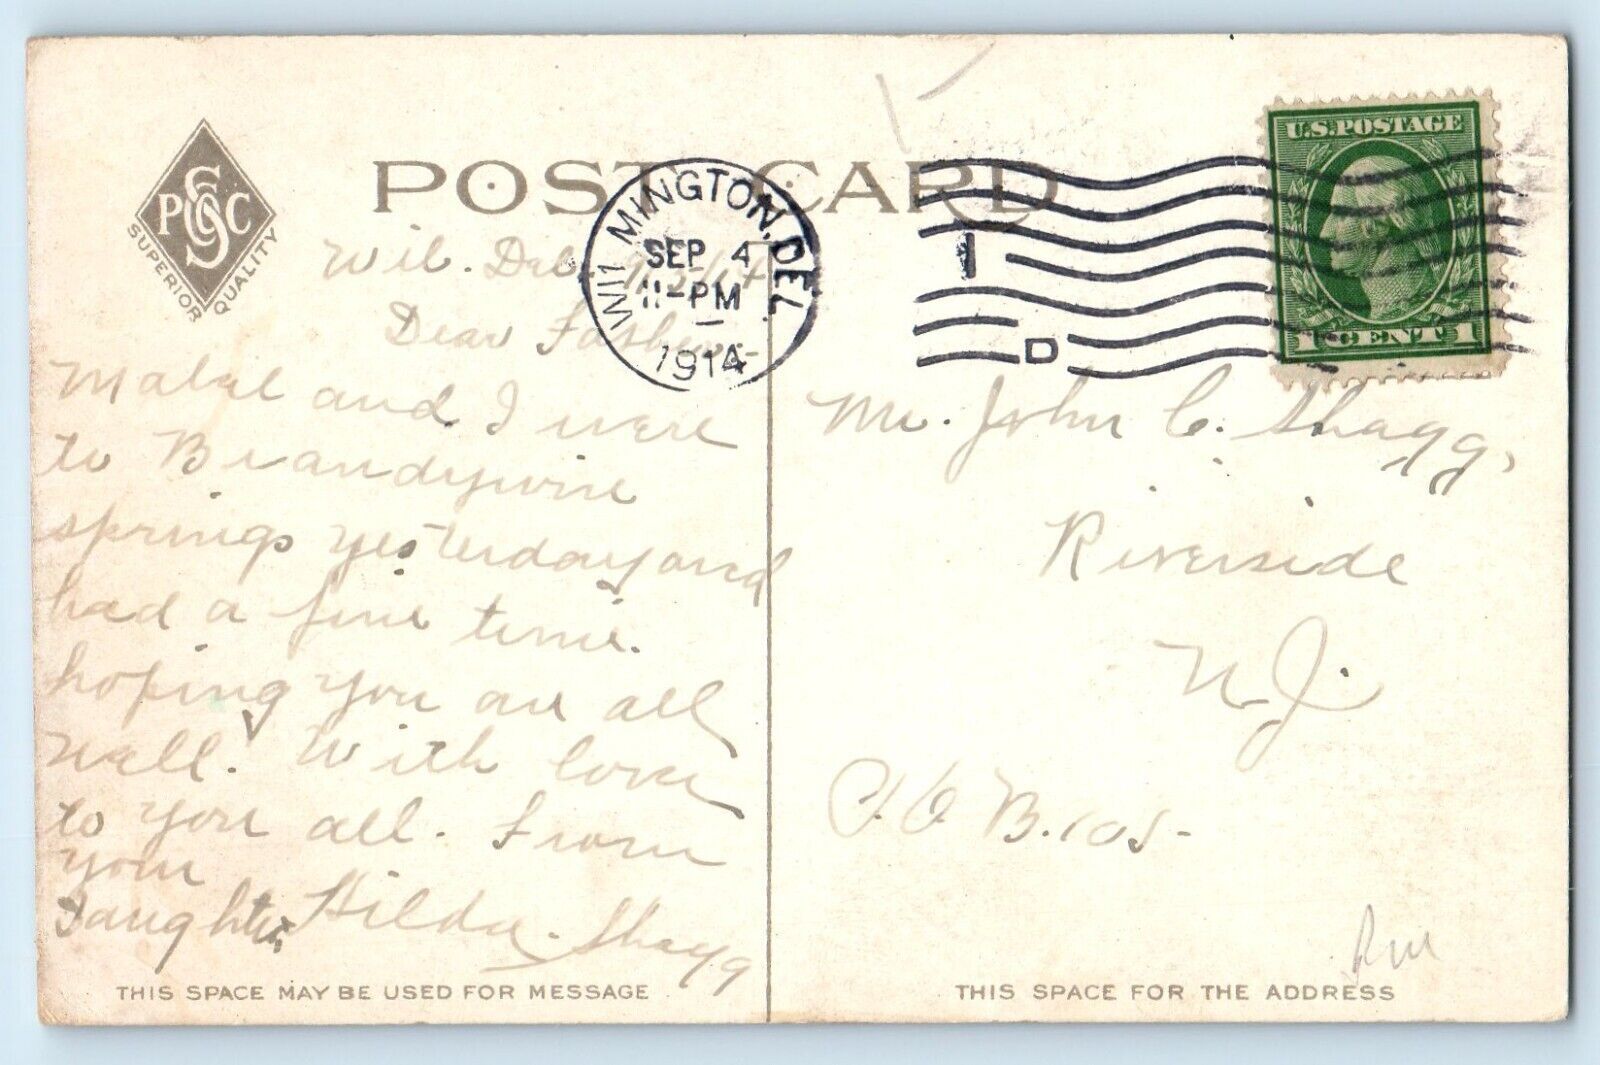 P S C
SUPERIOR QUALITY
POST CARD
WILMINGTON, DEL.
SEP 4
11-PM
1914
1
D
U.S. POSTAGE
1 CENT 1
Wil. Del.
Dear Father-
Mabel and I were
to Brandywine
springs yesterday and
had a fine time.
hoping you are all
well. With love
to you all. From
your
daughter, Hilda Shagg
THIS SPACE MAY BE USED FOR MESSAGE
Mr. John C. Shagg,
Riverside
N.J.
P.O B. 105-
THIS SPACE FOR THE ADDRESS